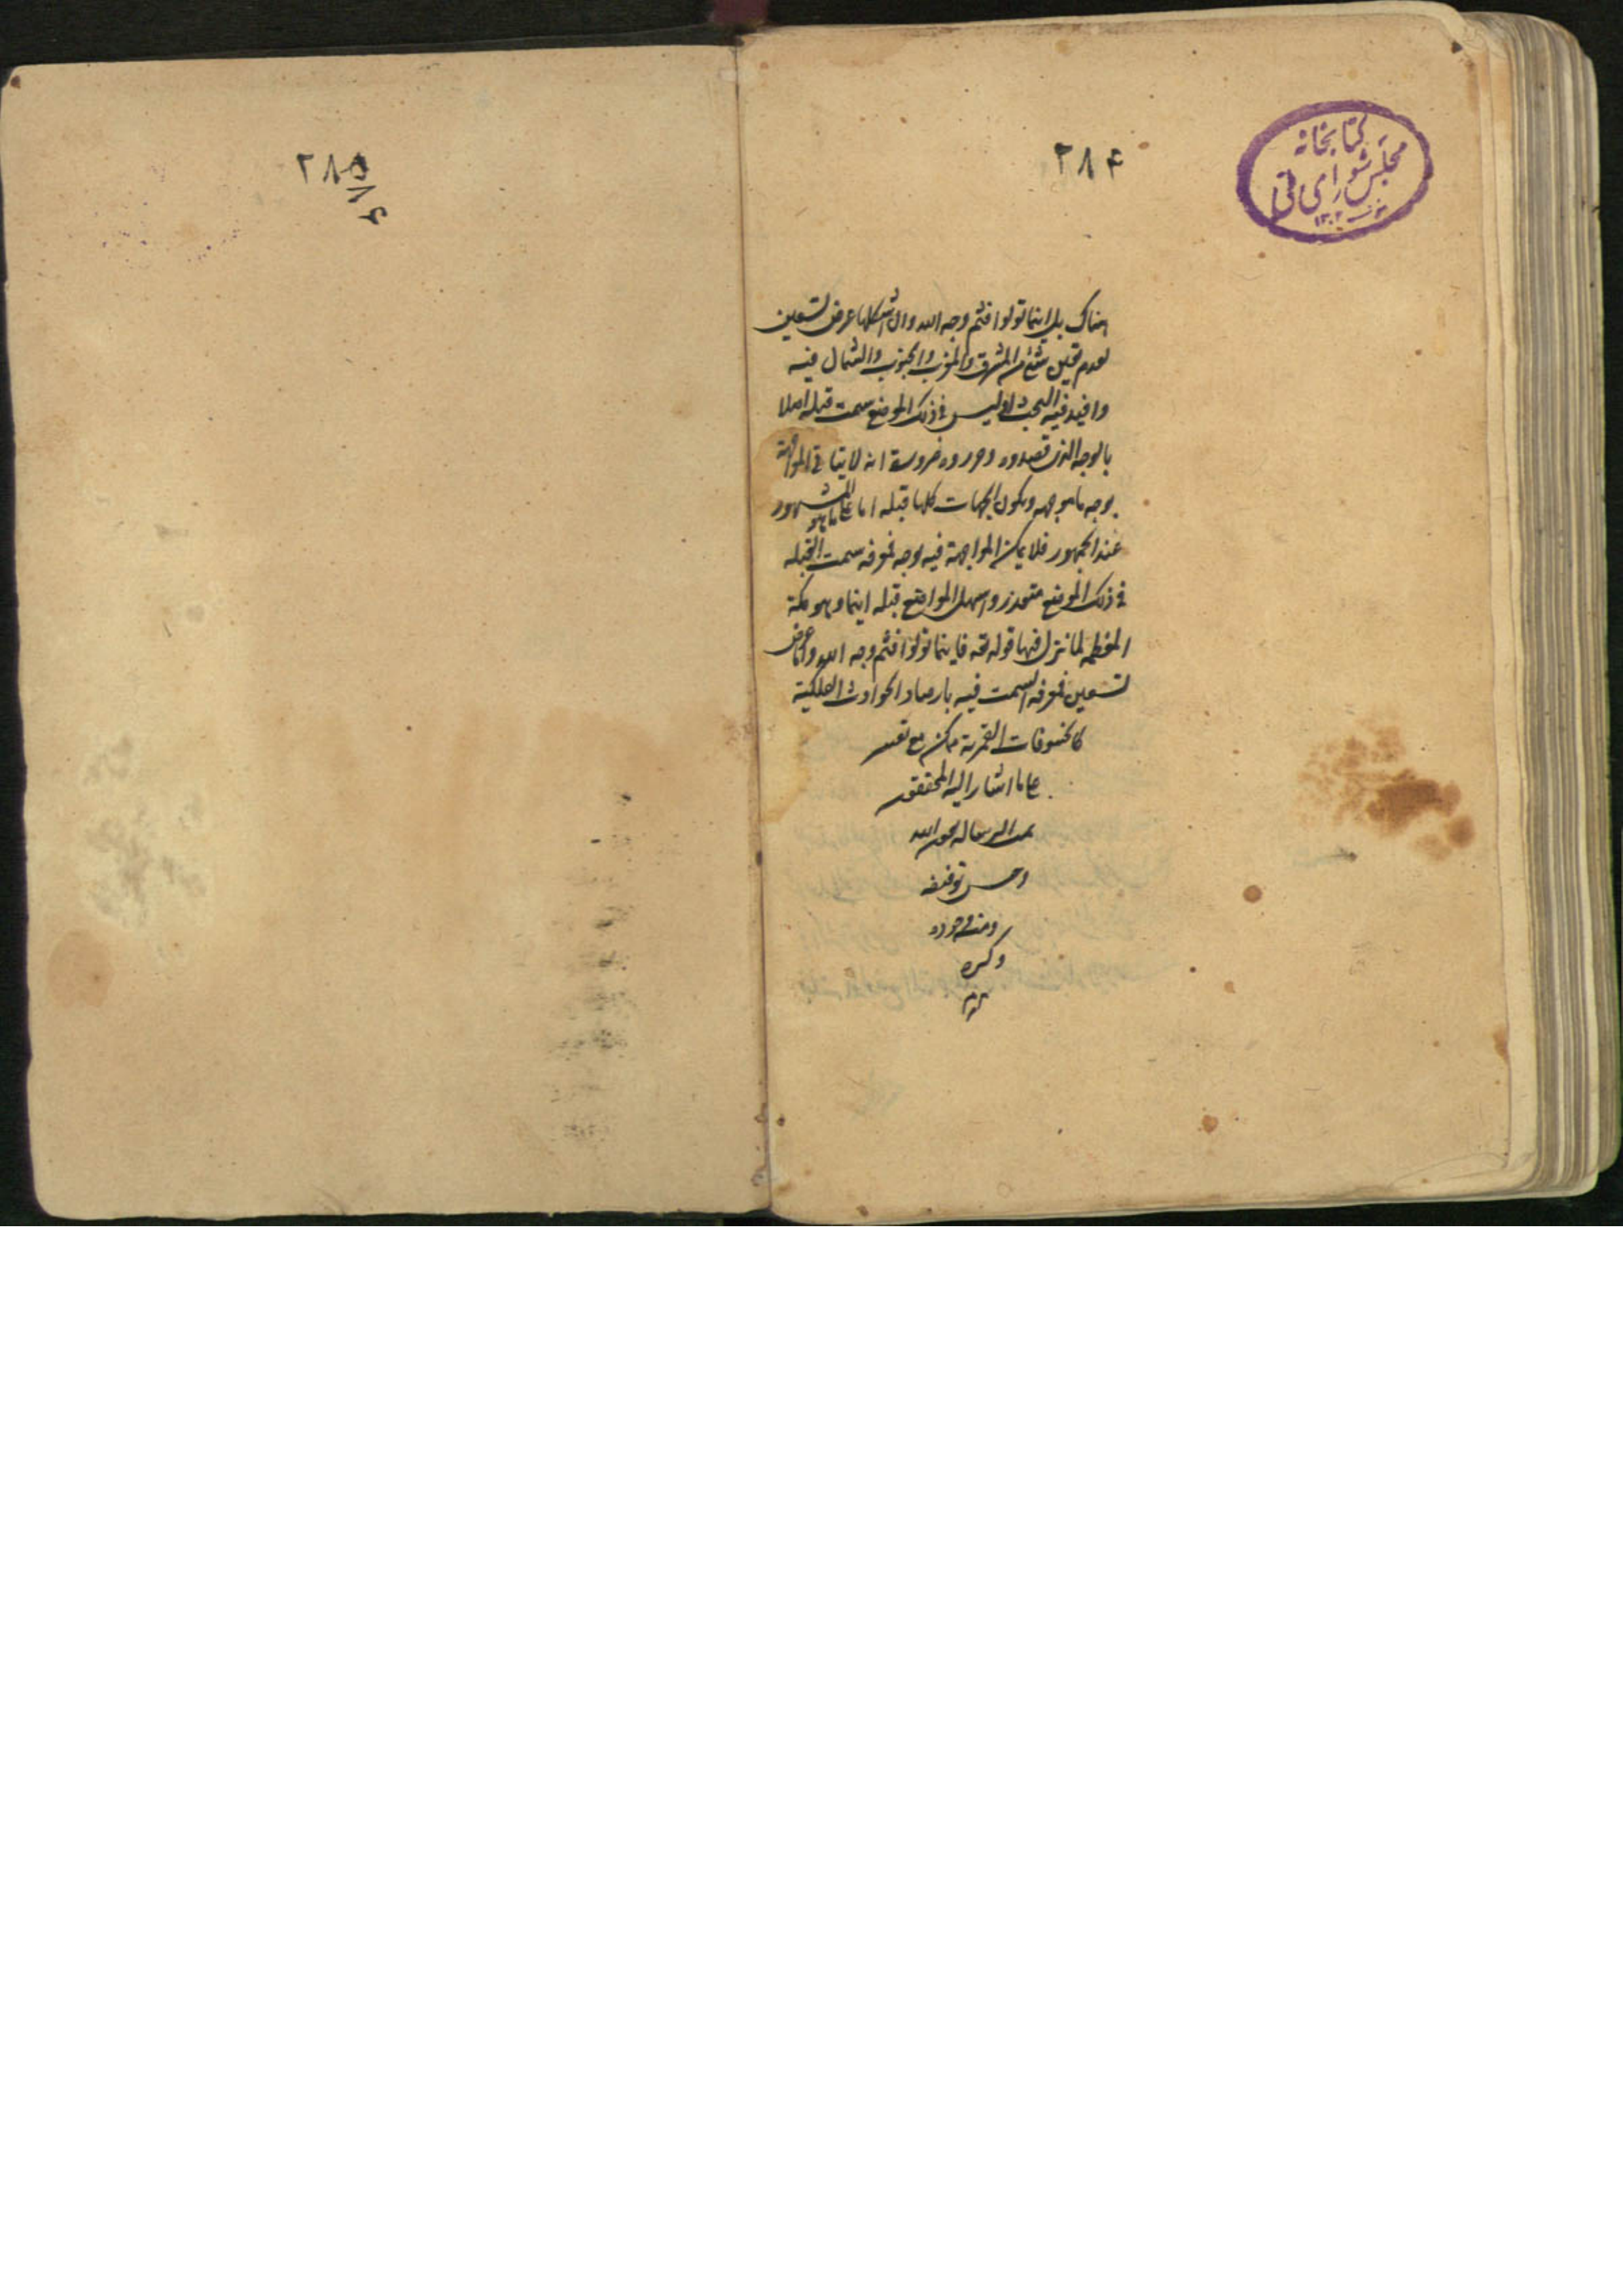 کتابخانه
مجلس شورای ملی
۱۳۰۲
۲۸۴
هناك بل اينما تولوا فثم وجه الله وان اشكلها عرض تسعين
لعدم تعين شئ من المشرق والمغرب والجنوب والشمال فيه
فيه البحث ليس فى ذلك الموضع سمت قبلة اصلا
بالوجه الذى قصدوه انه لا يتأتى المواجهة
بوجه ويكون الجهات كلها قبلة اما على ما هو المشهور
عند الجمهور فلا يمكن المواجهة فيه بوجه فمعرفة سمت القبلة
فى ذلك الموضع متعذر واسهل المواضع قبلة وهو مكة
المعظمه لما نزل فيها قوله تعه فاينما تولوا فثم وجه الله واما عرض
تسعين فمعرفة السمت فيه بارصاد الحوادث الفلكية
كالخسوفات القمرية ممكن مع تعسر
على ما اشار اليه المحقق
تمت الرساله بعون الله
وحسن توفيقه
ومنه وجوده
وكرمه
۲۸۵